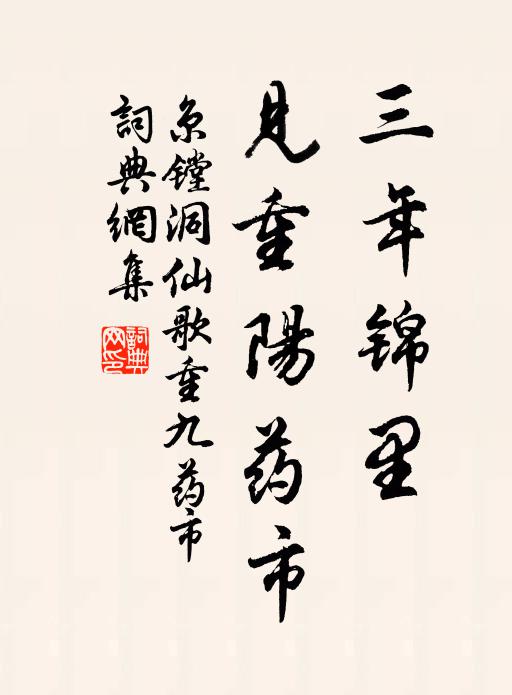 三年锦里
見重陽药市
京镗洞仙歌重九药市
詞典網集
詞典
网印